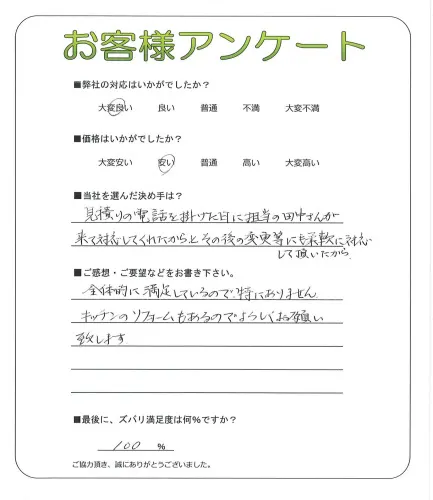 お客様アンケート
■弊社の対応はいかがでしたか?
大変良い 良い 普通 不満 大変不満
■価格はいかがでしたか?
大変安い 安い 普通 高い 大変高い
■当社を選んだ決め手は?
見積りの電話を掛けた日に担当の田中さんが
来て対応してくれたからと その後の変更等にも柔軟に対応
して頂いたから
■ご感想・ご要望などをお書き下さい。
全体的に満足しているので特にありません
キッチンのリフォームもあるのでよろしくお願い
致します
■最後に、ズバリ満足度は何%ですか?
100 %
ご協力頂き、誠にありがとうございました。